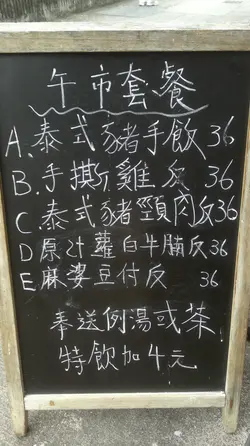 午市套餐
A.泰式豬手飯36
B.手撕雞反36
C.泰式豬頸肉反36
D原汁蘿白牛腩反36
E麻婆豆付反36
奉送例湯或茶
特飲加4元